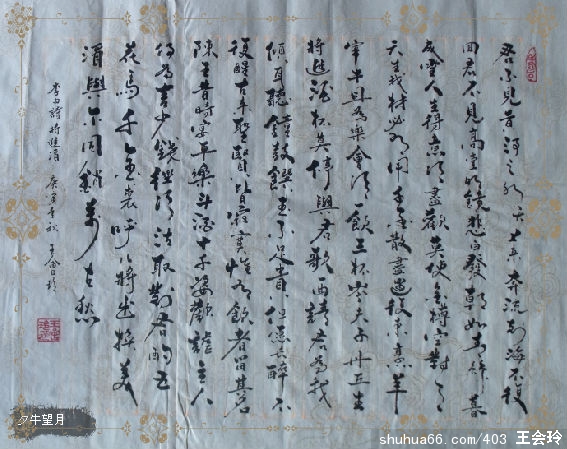 君不見黃河之水天上來奔流到海不復
回君不見高堂明鏡悲白髮朝如青絲暮
成雪人生得意須盡歡莫使金樽空對月
天生我材必有用千金散盡還復來烹羊
宰牛且為樂會須一飲三百杯岑夫子丹丘生
將進酒杯莫停與君歌一曲請君為我
傾耳聽鐘鼓饌玉不足貴但願長醉不
復醒古來聖賢皆寂寞惟有飲者留其名
陳王昔時宴平樂斗酒十千恣歡謔主人
何為言少錢徑須沽取對君酌五
花馬千金裘呼兒將出換美
酒與爾同銷萬古愁
李白詩將進酒 庚寅年秋
夕牛望月
shuhua66.com/403 王会玲